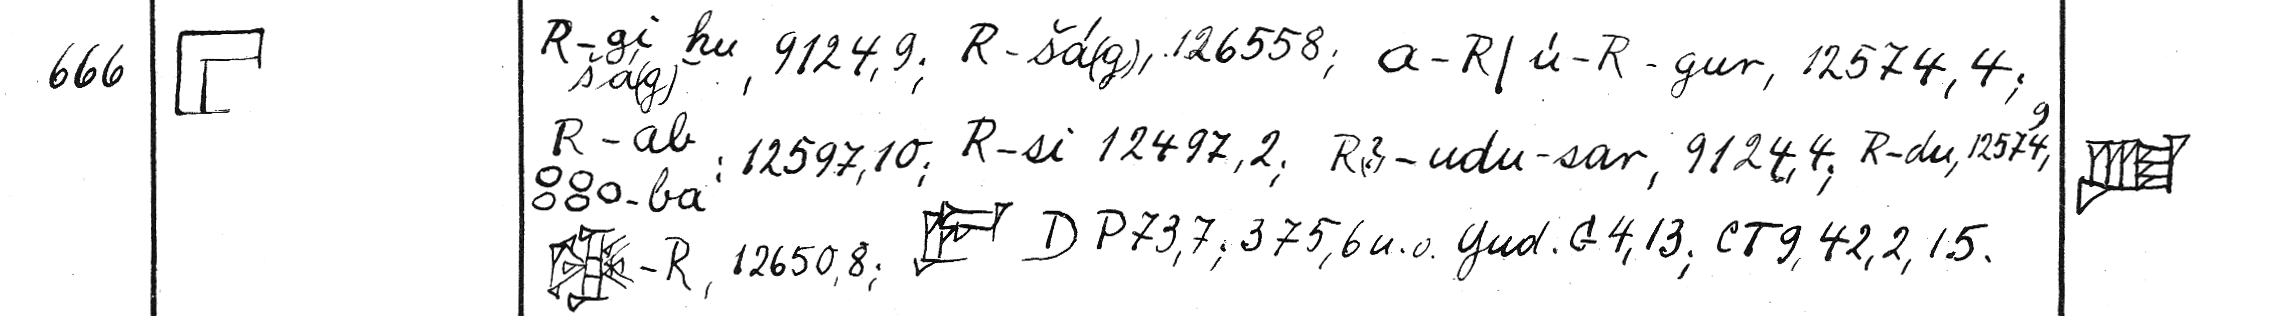 666
R-gi ḫu, 9124,9; R-šá(g), 126558; a-R/ú-R-gur, 12574,4;
šà(g)
R-ab : 12597,10; R-si 12497,2; R3-udu-sar, 9124,4; R-du, 12574,9
-ba
-R, 12650,8; DP73,7; 375,6 u.o. Gud. G 4,13; CT9,42,2,15.